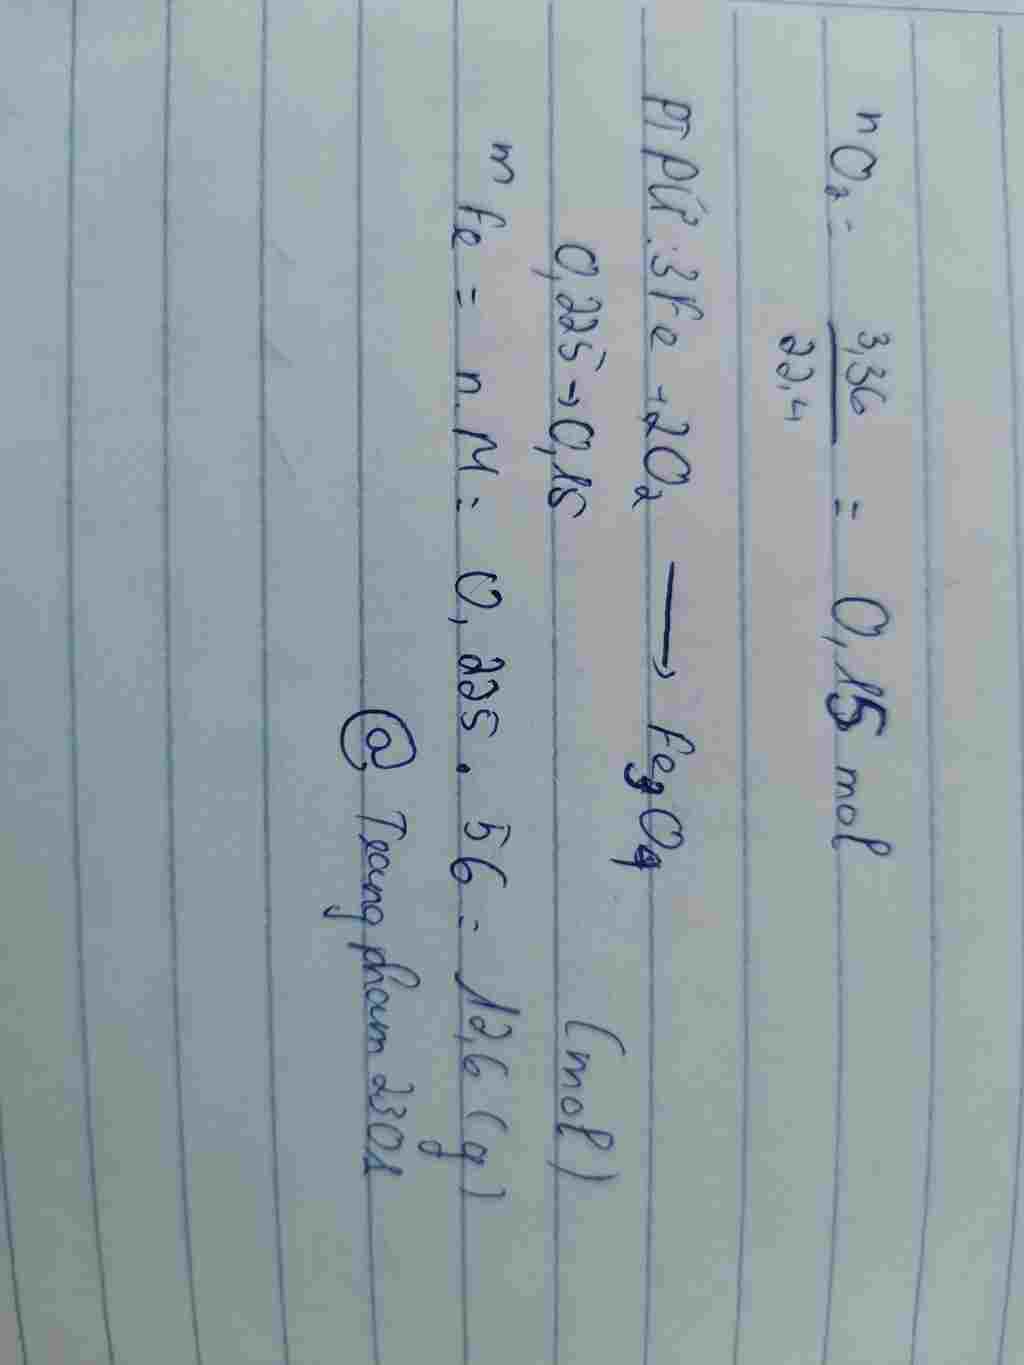 nO₂ = 3,36 / 22,4 = 0,15 mol
PTPỨ: 3Fe + 2O₂ ⟶ Fe₃O₄
0,225 → 0,15 (mol)
mFe = n.M = 0,225 . 56 = 12,6 (g)
@ Trangpham2301